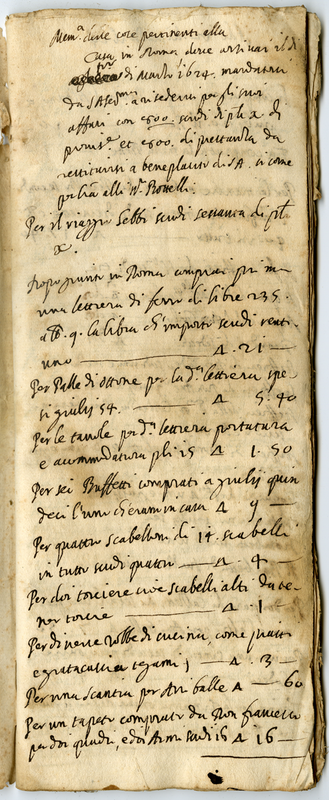 Mem.ª delle cose pertinenti alla
Casa in Roma dove arrivai li di
di Marzo 1624. mandatovi
da S A Ser.ma a risedervi per gli suoi
affari con 1500. scudi di pli x. di
provis.e et 1500. di prestanza da
restituirsi a beneplacito di S.A. si come
alli SS.ri Rovelli.
Per il viaggio hebbi scudi sessanta di pli
x.
Dopo giunto in Roma comprai prima
una lettiera di ferro di libre 235.
a bb. 9. la libra ch'importò scudi venti
uno — Δ . 21 —
Per Palle di ottone per la d.ª lettiera spe-
si giulij 54. — Δ 5. 40
Per le tavole per d.ª lettiera portatura
e accommodatura pli 15 Δ 1. 50
Per sei Buffetti comprati a giulij quin
deci l'uno ch'eran in casa Δ 9 —
Per quattro scabelloni di 14. scabelli
in tutto scudi quattro — Δ 4 —
Per doi torciere cioè scabelli alti da te-
ner torcie — Δ . 1 —
Per diverse robbe di cucina, come piatti
e grattacascia tegami — Δ . 3 —
Per una scantia per tre balle Δ — 60
Per un tapeto comprato da Don francesco
per doi quadri, e doi Armi scudi 16 Δ 16 —